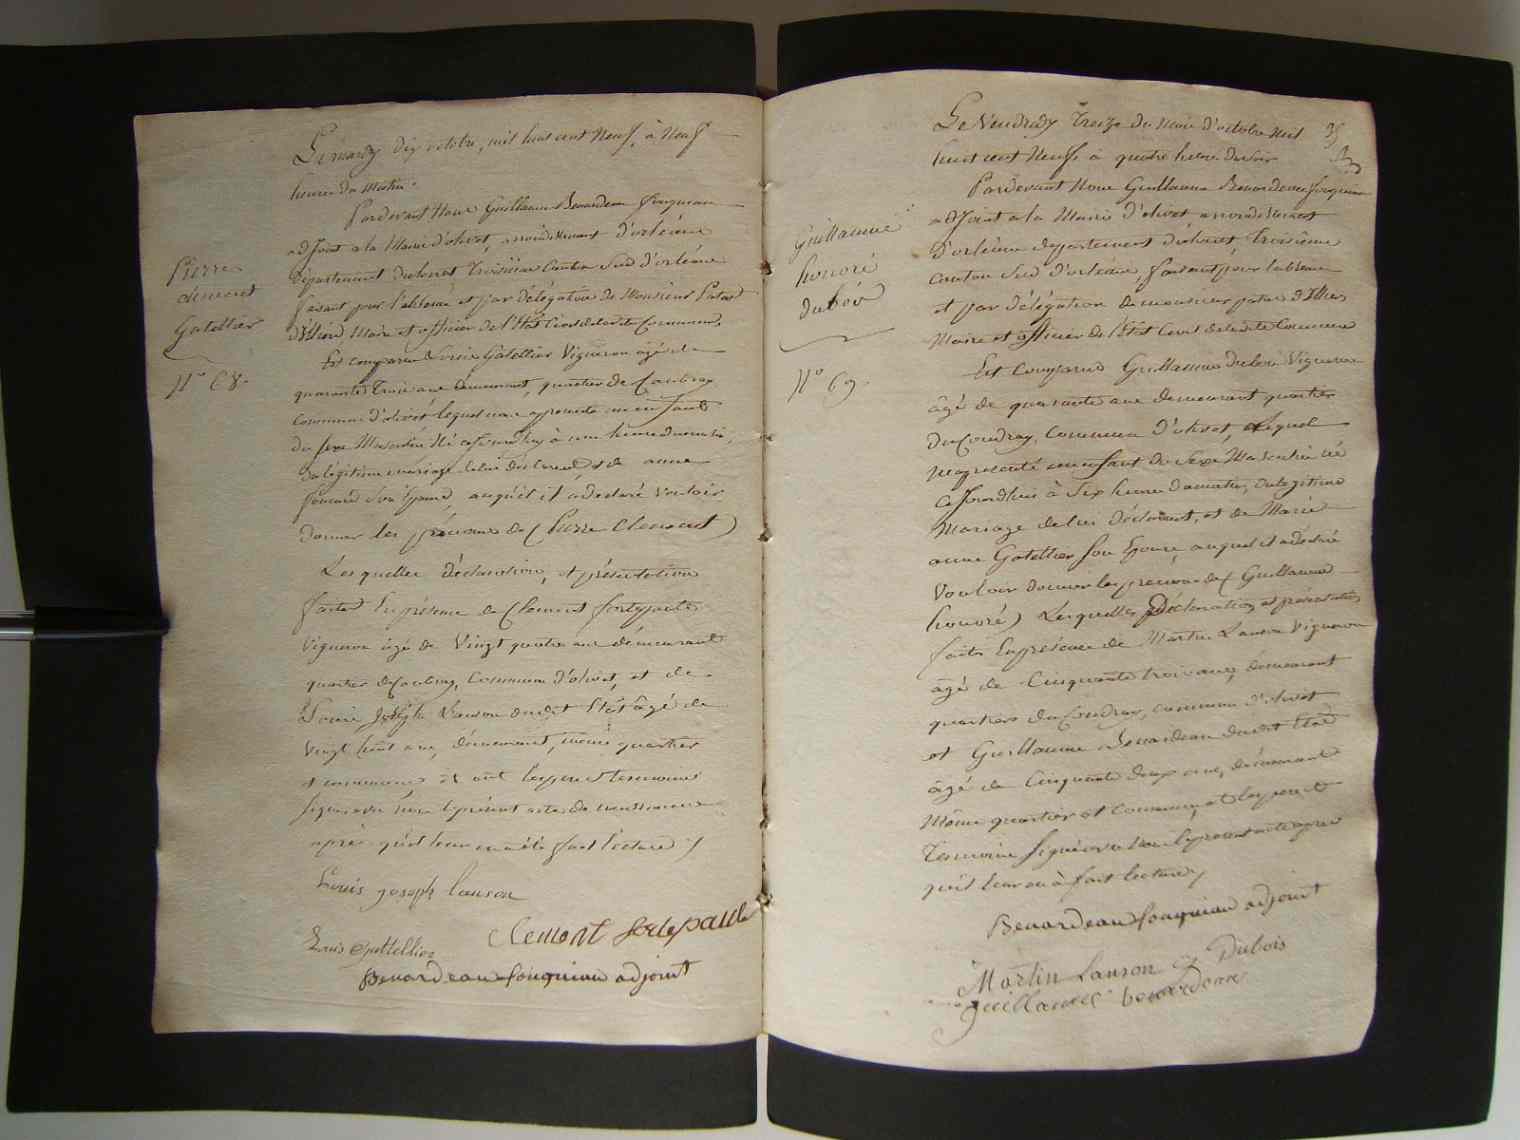 Pierre
clement
Gatellier
N.o 68.
Le mardy dix octobre, mil huit cent Neuf, à Neuf
heures du Matin.
Pardevant Nous Guillaume Benardeau fouquiau
adjoint a la Mairie d'olivet, arrondissement d'orléans
Département du loiret troisième Canton Sud d'orléans
fesant pour l'absence et par délégation de Monsieur Patas
d'Illiers Maire et officier de l'État Civil de ladite Commune,
Est comparu Louis Gatellier Vigneron âgé de
quarante trois ans demeurant, quartier de Caubray
commune d'olivet lequel nous a présenté un enfant
du sexe Masculin Né cejourdhuy à une heure du matin,
du légitime mariage de lui déclarant et de anne
son Épouse, auquel il a déclaré vouloir
donner les prénoms de (Pierre Clement)
Lesquelles déclaration, et présentation
faites En présence de Clement
Vigneron âgé de Vingt quatre ans démeurant
quartier de Caubray, Commune d'olivet, et de
Louis Joseph Lanson dudit État âgé de
vingt huit ans, démeurant, même quartier
et commune et ont les pere et temoins
signé avec nous le présent acte de naissance
après qu'il leur en a été fait lecture ./.
Louis joseph lanson
Clemont
Louis gattellier
Benardeau fouquiau adjoint
35
Guillaume
honoré
dubois
N.o 69.
Le Vendredy Treize du mois d'octobre mil
huit cent Neuf, à quatre heures du soir
Pardevant Nous Guillaume Benardeau fouquiau
adjoint a la Mairie d'olivet arrondissement
D'orléans departement du loiret Troisième
canton Sud d'orléans, faisant pour labsence
et par délégation de monsieur patas d'Illiers
Maire et officier de l'État Civil de ladite Commune
Est Comparu Guillaume dubois Vigneron
âgé de quarante ans demeurant quartier
du Coudray, commune d'olivet, lequel
nous a présenté un enfant du Sexe Masculin né
Cejourdhui à Six heures du matin, du legitime
Mariage de lui Déclarant, et de Marie
anne Gatellier Son Epouse, auquel il a déclaré
Vouloir donner les prénoms de (Guillaume
honoré) Lesquelles Déclaration et présentation
faites En présence de Martin Lanson Vigneron
âgé de Cinquante trois ans, demeurant
quartier du Coudray, commune d'olivet
et Guillaume Benardeau dudit État
âgé de Cinquante deux ans, démeurant
Même quartier et Commune, et les pere et
Temoins Signé avec nous le present acte apres
qu'il leur en a fait lecture ./.
Benardeau fouquiau adjoint
Martin Lanson G Dubois
guillaume benardeau